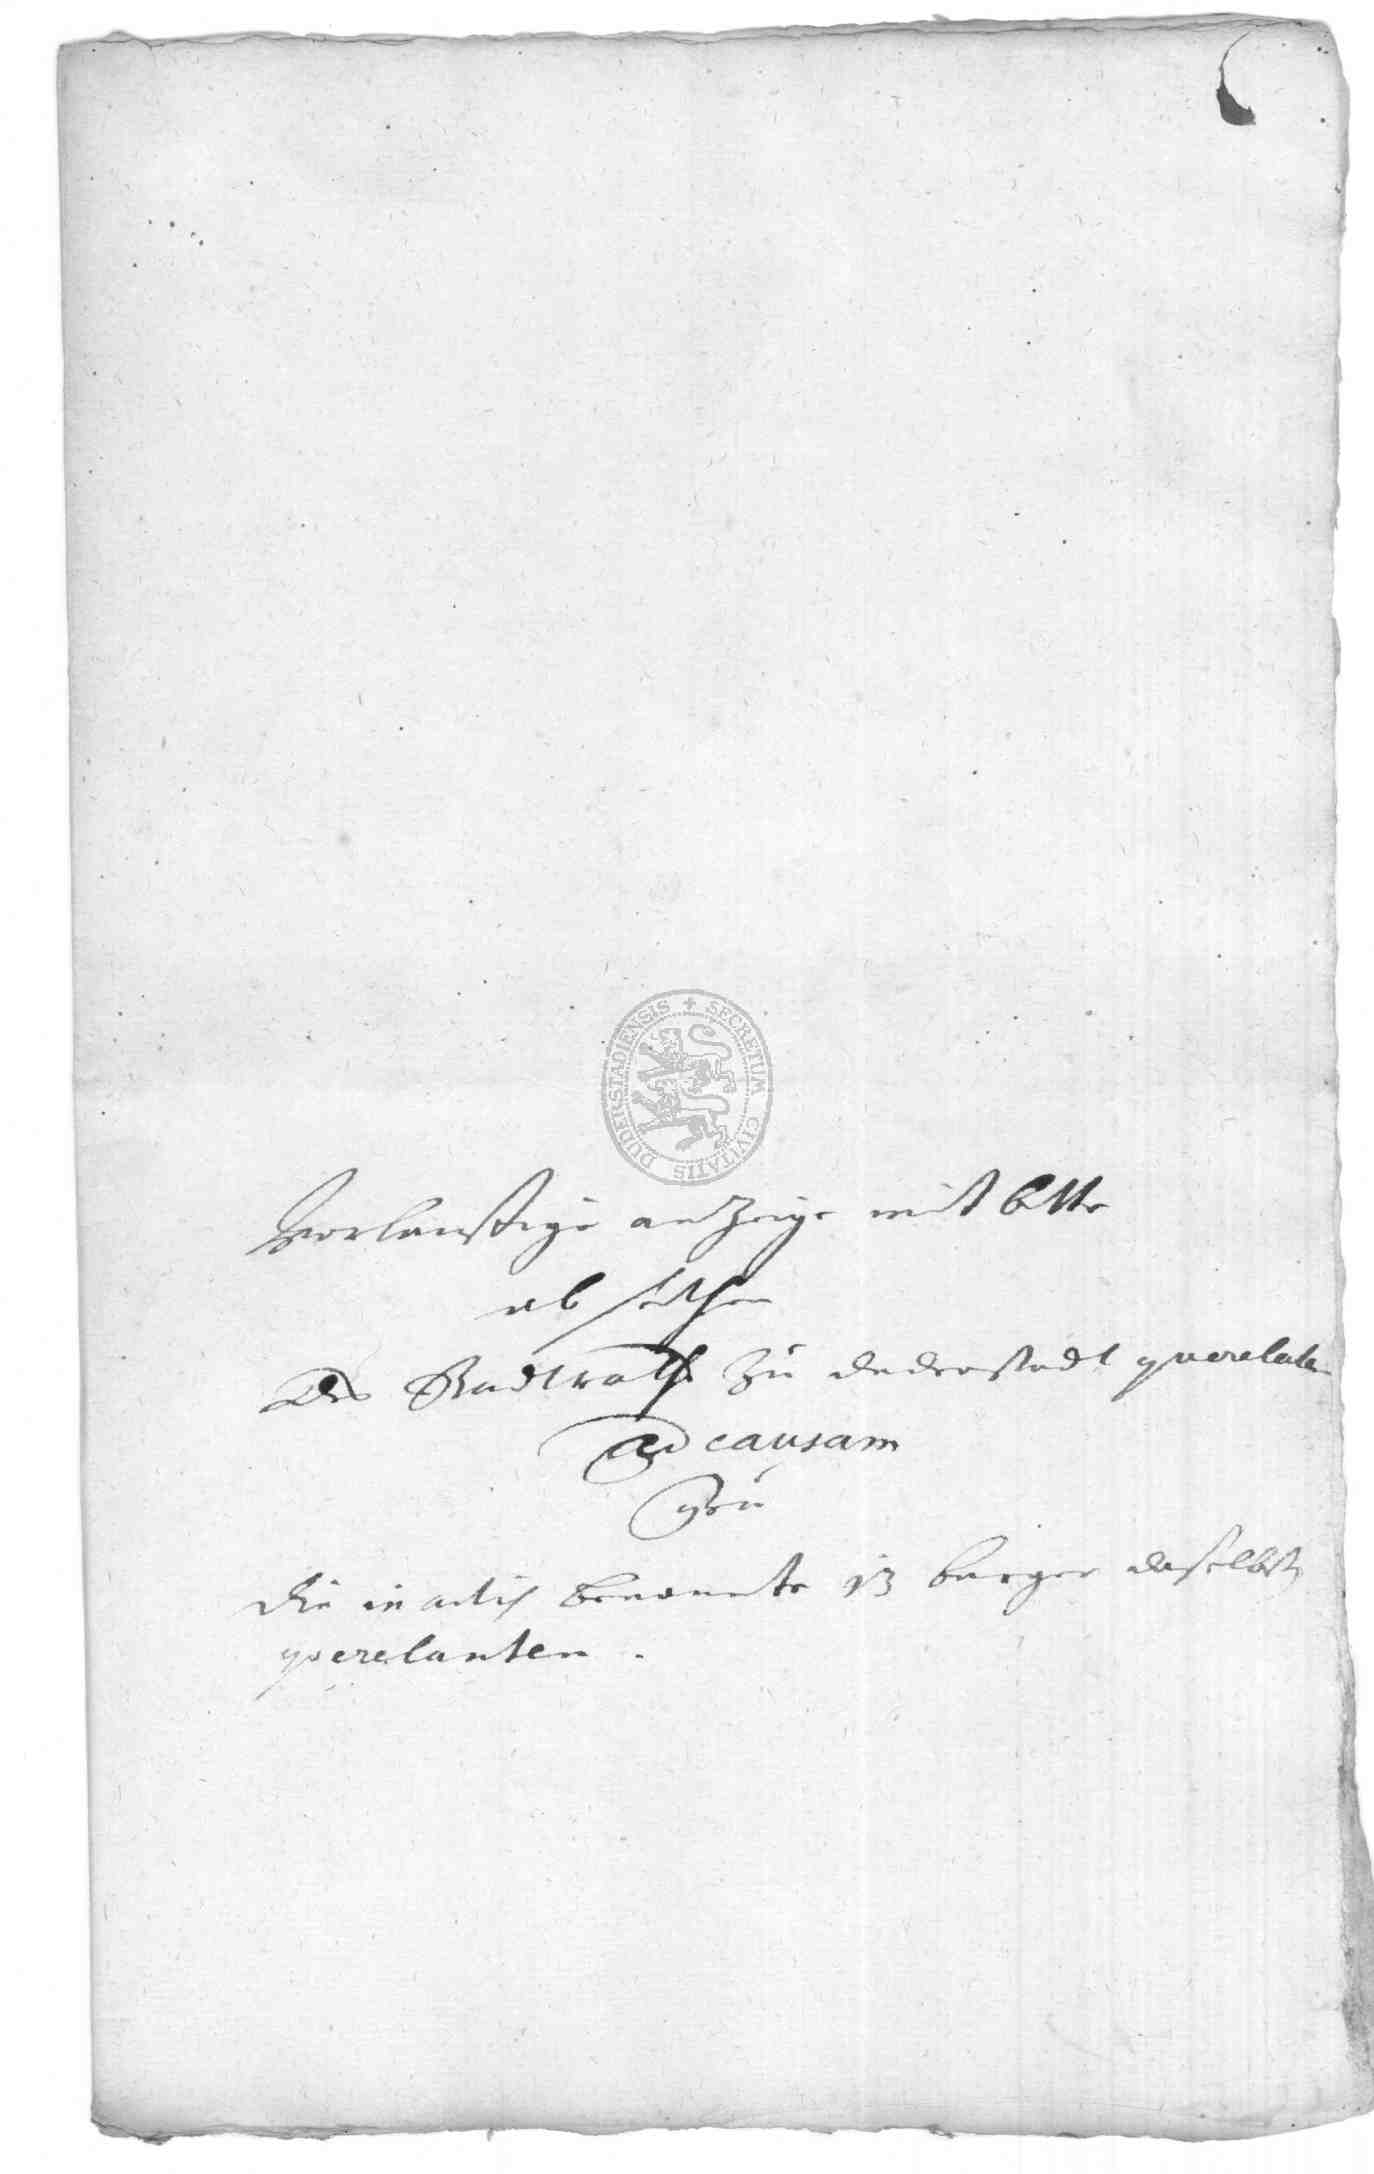 SECRETUM CIVITATIS DUDERSTADIENSIS
Vorlauffige anzeige mit bitte
ab seithen
Des Stadtraths Zu duderstadt querelaten
Ad causam
die in actis benante 13 burger daselbst
querelanten.